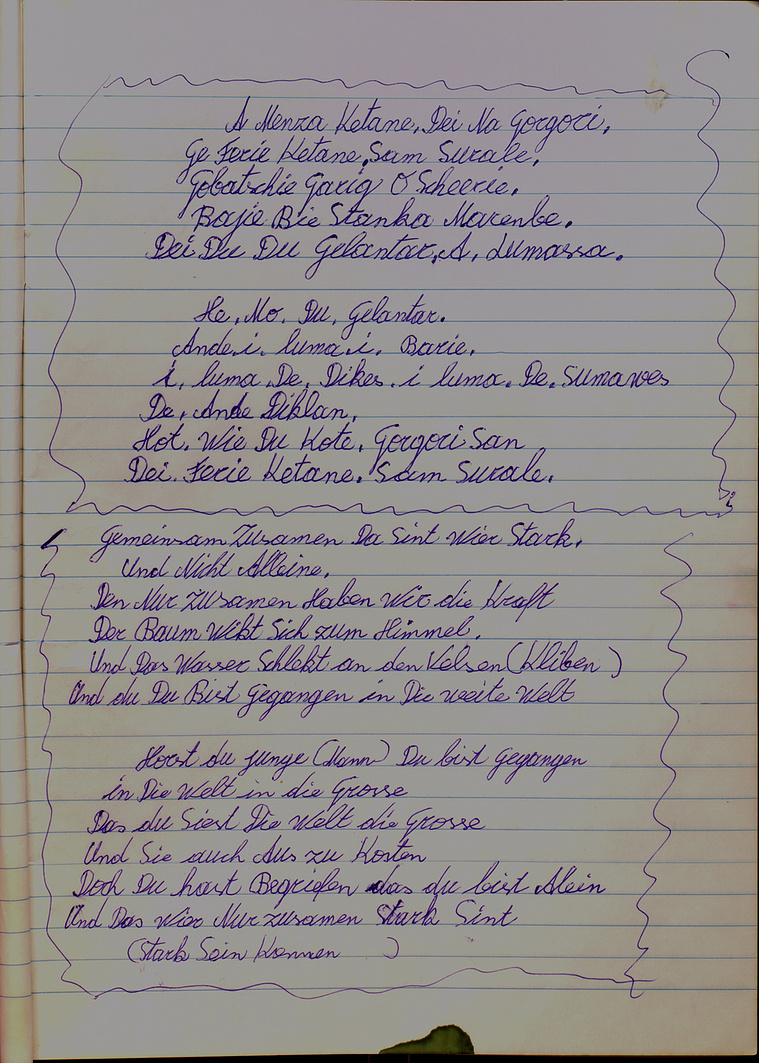 A Menza Ketane, Dei Na Gorgori.
Ge Ferie Ketane, Sam Surale.
Gobatschie Garig O Scheerie.
Bajie Bie Stanka Marenbe.
Dei Du Du Gelantar, A, Lumassa.
He, Mo, Du, Gelantar.
Ande, i, luma, i, Barie.
i, luma, De, Dikes, i luma, De, Sumawes
De, Ande Diklan,
Hot, Wie Du Kote, Gorgori San
Dei, Ferie Ketane, Sam Surale.
Gemeinsam Zusamen Da Sint Wier Stark,
Und Nicht Alleine.
Den Nur Zusamen Haben Wir die Kraft
Der Baum Wikt Sich zum Himmel.
Und Das Wasser Schlekt an den Velsen (Kliben )
Und du Du Bist Gegangen in Die weite Welt
Horst du junge (Mann) Du bist Gegangen
in Die Welt in die Grosse
Das du Siest Die Welt die Grosse
Und Sie auch Aus zu Kosten
Doch Du hast Begriefen das du bist Alein
Und Das Wier Nur zusamen Stark Sint
(Stark Sein Konnen )